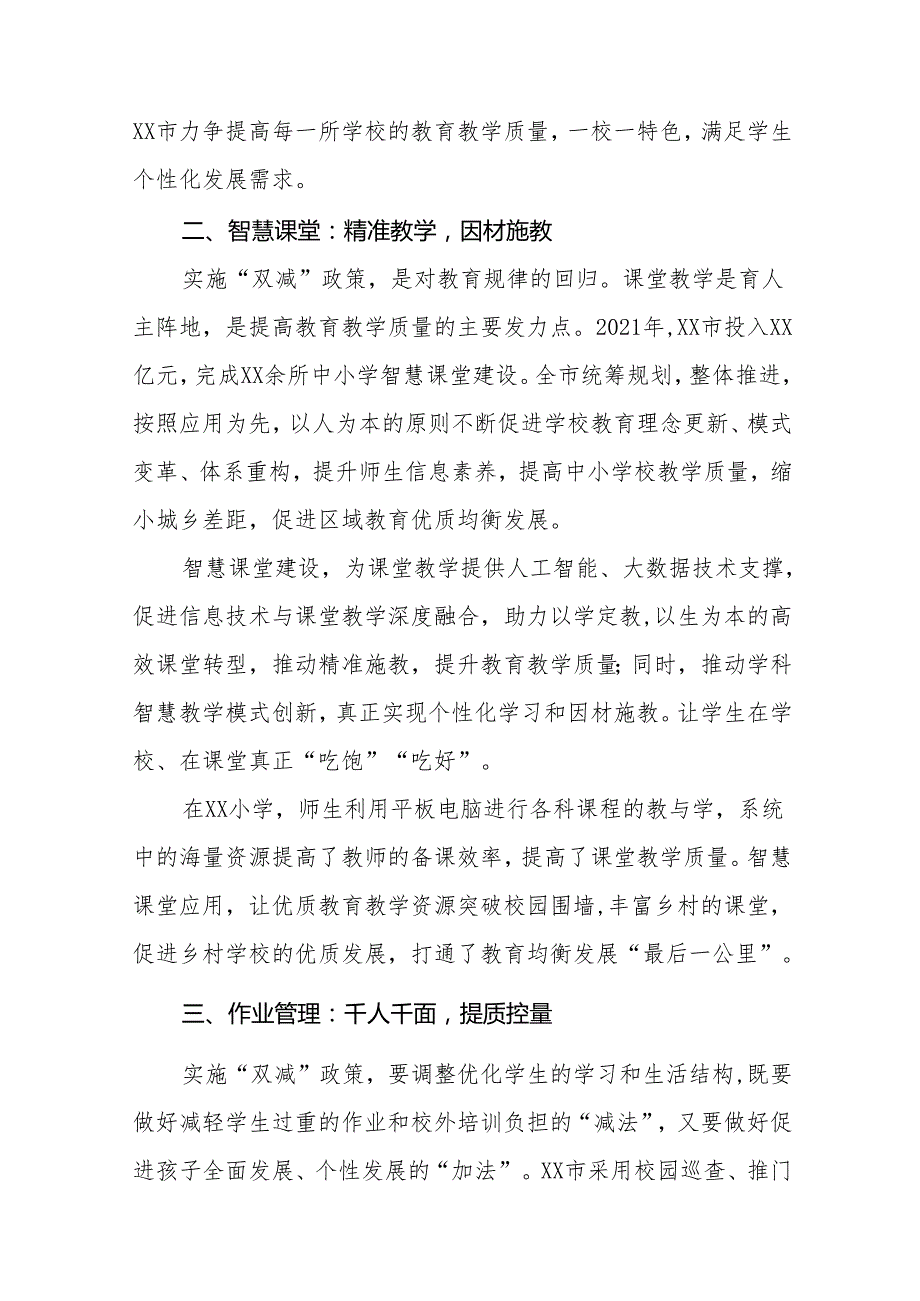 XX市力争提高每一所学校的教育教学质量，一校一特色，满足学生
个性化发展需求。
二、智慧课堂：精准教学，因材施教
实施“双减”政策，是对教育规律的回归。课堂教学是育人
主阵地，是提高教育教学质量的主要发力点。2021年,XX市投入XX
亿元，完成XX余所中小学智慧课堂建设。全市统筹规划，整体推进，
按照应用为先，以人为本的原则不断促进学校教育理念更新、模式
变革、体系重构，提升师生信息素养，提高中小学校教学质量，缩
小城乡差距，促进区域教育优质均衡发展。
智慧课堂建设，为课堂教学提供人工智能、大数据技术支撑，
促进信息技术与课堂教学深度融合，助力以学定教,以生为本的高
效课堂转型，推动精准施教，提升教育教学质量；同时，推动学科
智慧教学模式创新，真正实现个性化学习和因材施教。让学生在学
校、在课堂真正“吃饱”“吃好”。
在XX小学，师生利用平板电脑进行各科课程的教与学，系统
中的海量资源提高了教师的备课效率，提高了课堂教学质量。智慧
课堂应用，让优质教育教学资源突破校园围墙,丰富乡村的课堂，
促进乡村学校的优质发展，打通了教育均衡发展“最后一公里”。
三、作业管理：千人千面，提质控量
实施“双减”政策，要调整优化学生的学习和生活结构,既要
做好减轻学生过重的作业和校外培训负担的“减法”，又要做好促
进孩子全面发展、个性发展的“加法”。XX市采用校园巡查、推门